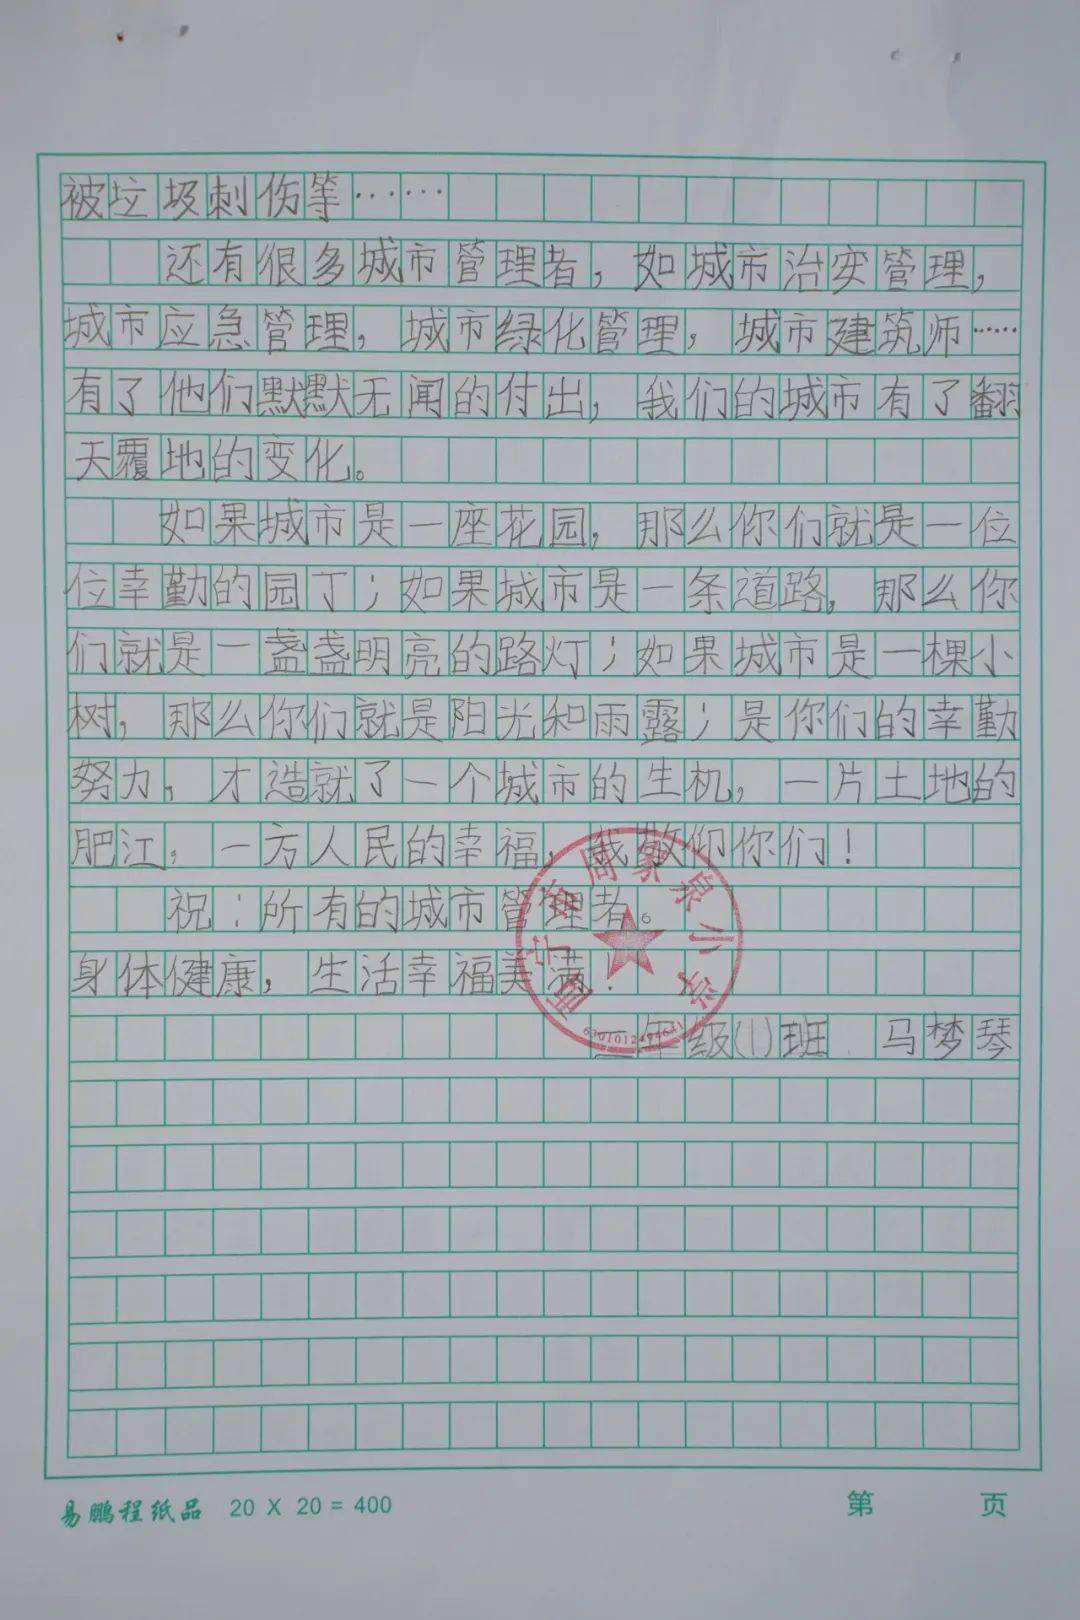 被垃圾刺伤等……
还有很多城市管理者，如城市治安管理，
城市应急管理，城市绿化管理，城市建筑师……
有了他们默默无闻的付出，我们的城市有了翻
天覆地的变化。
如果城市是一座花园，那么你们就是一位
位幸勤的园丁；如果城市是一条道路，那么你
们就是一盏盏明亮的路灯；如果城市是一棵小
树，那么你们就是阳光和雨露；是你们的幸勤
努力，才造就了一个城市的生机，一片土地的
肥江，一方人民的幸福，我敬仰你们！
祝：所有的城市管理者。
身体健康，生活幸福美满！
年级(1)班 马梦琴
西宁市周家泉小学
易鹏程纸品 20 X 20 = 400
第 页